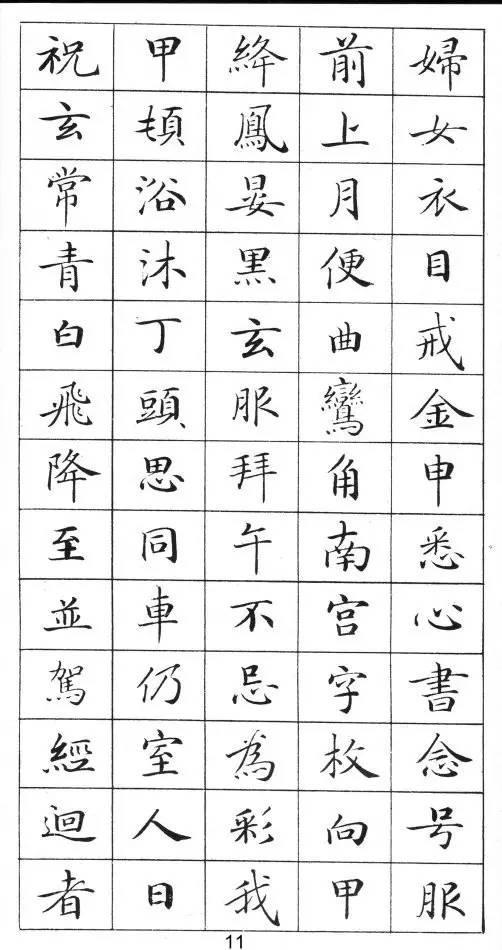 婦女衣目戒金申悉心書念号服
前上月便曲鸞角南宫字枚向甲
絳鳳晏黒玄服拜午不忌為彩我
甲頓浴沐丁頭思同車仍室人日
祝玄常青白飛降至並駕經迴者
11